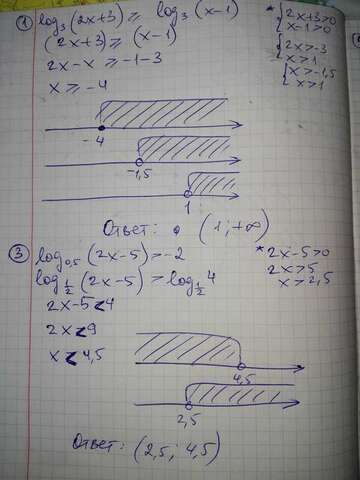 ① log₃(2x+3) ≥ log₃(x-1)
(2x+3) ≥ (x-1)
2x-x ≥ -1-3
x ≥ -4
* { 2x+3>0
x-1>0
{ 2x>-3
x>1
{ x>-1,5
x>1
-4
-1,5
1
Ответ: (1;+∞)
③ log₀,₅(2x-5) > -2
log½(2x-5) > log½4
2x-5<4
2x<9
x<4,5
* 2x-5>0
2x>5
x>2,5
4,5
2,5
Ответ: (2,5; 4,5)